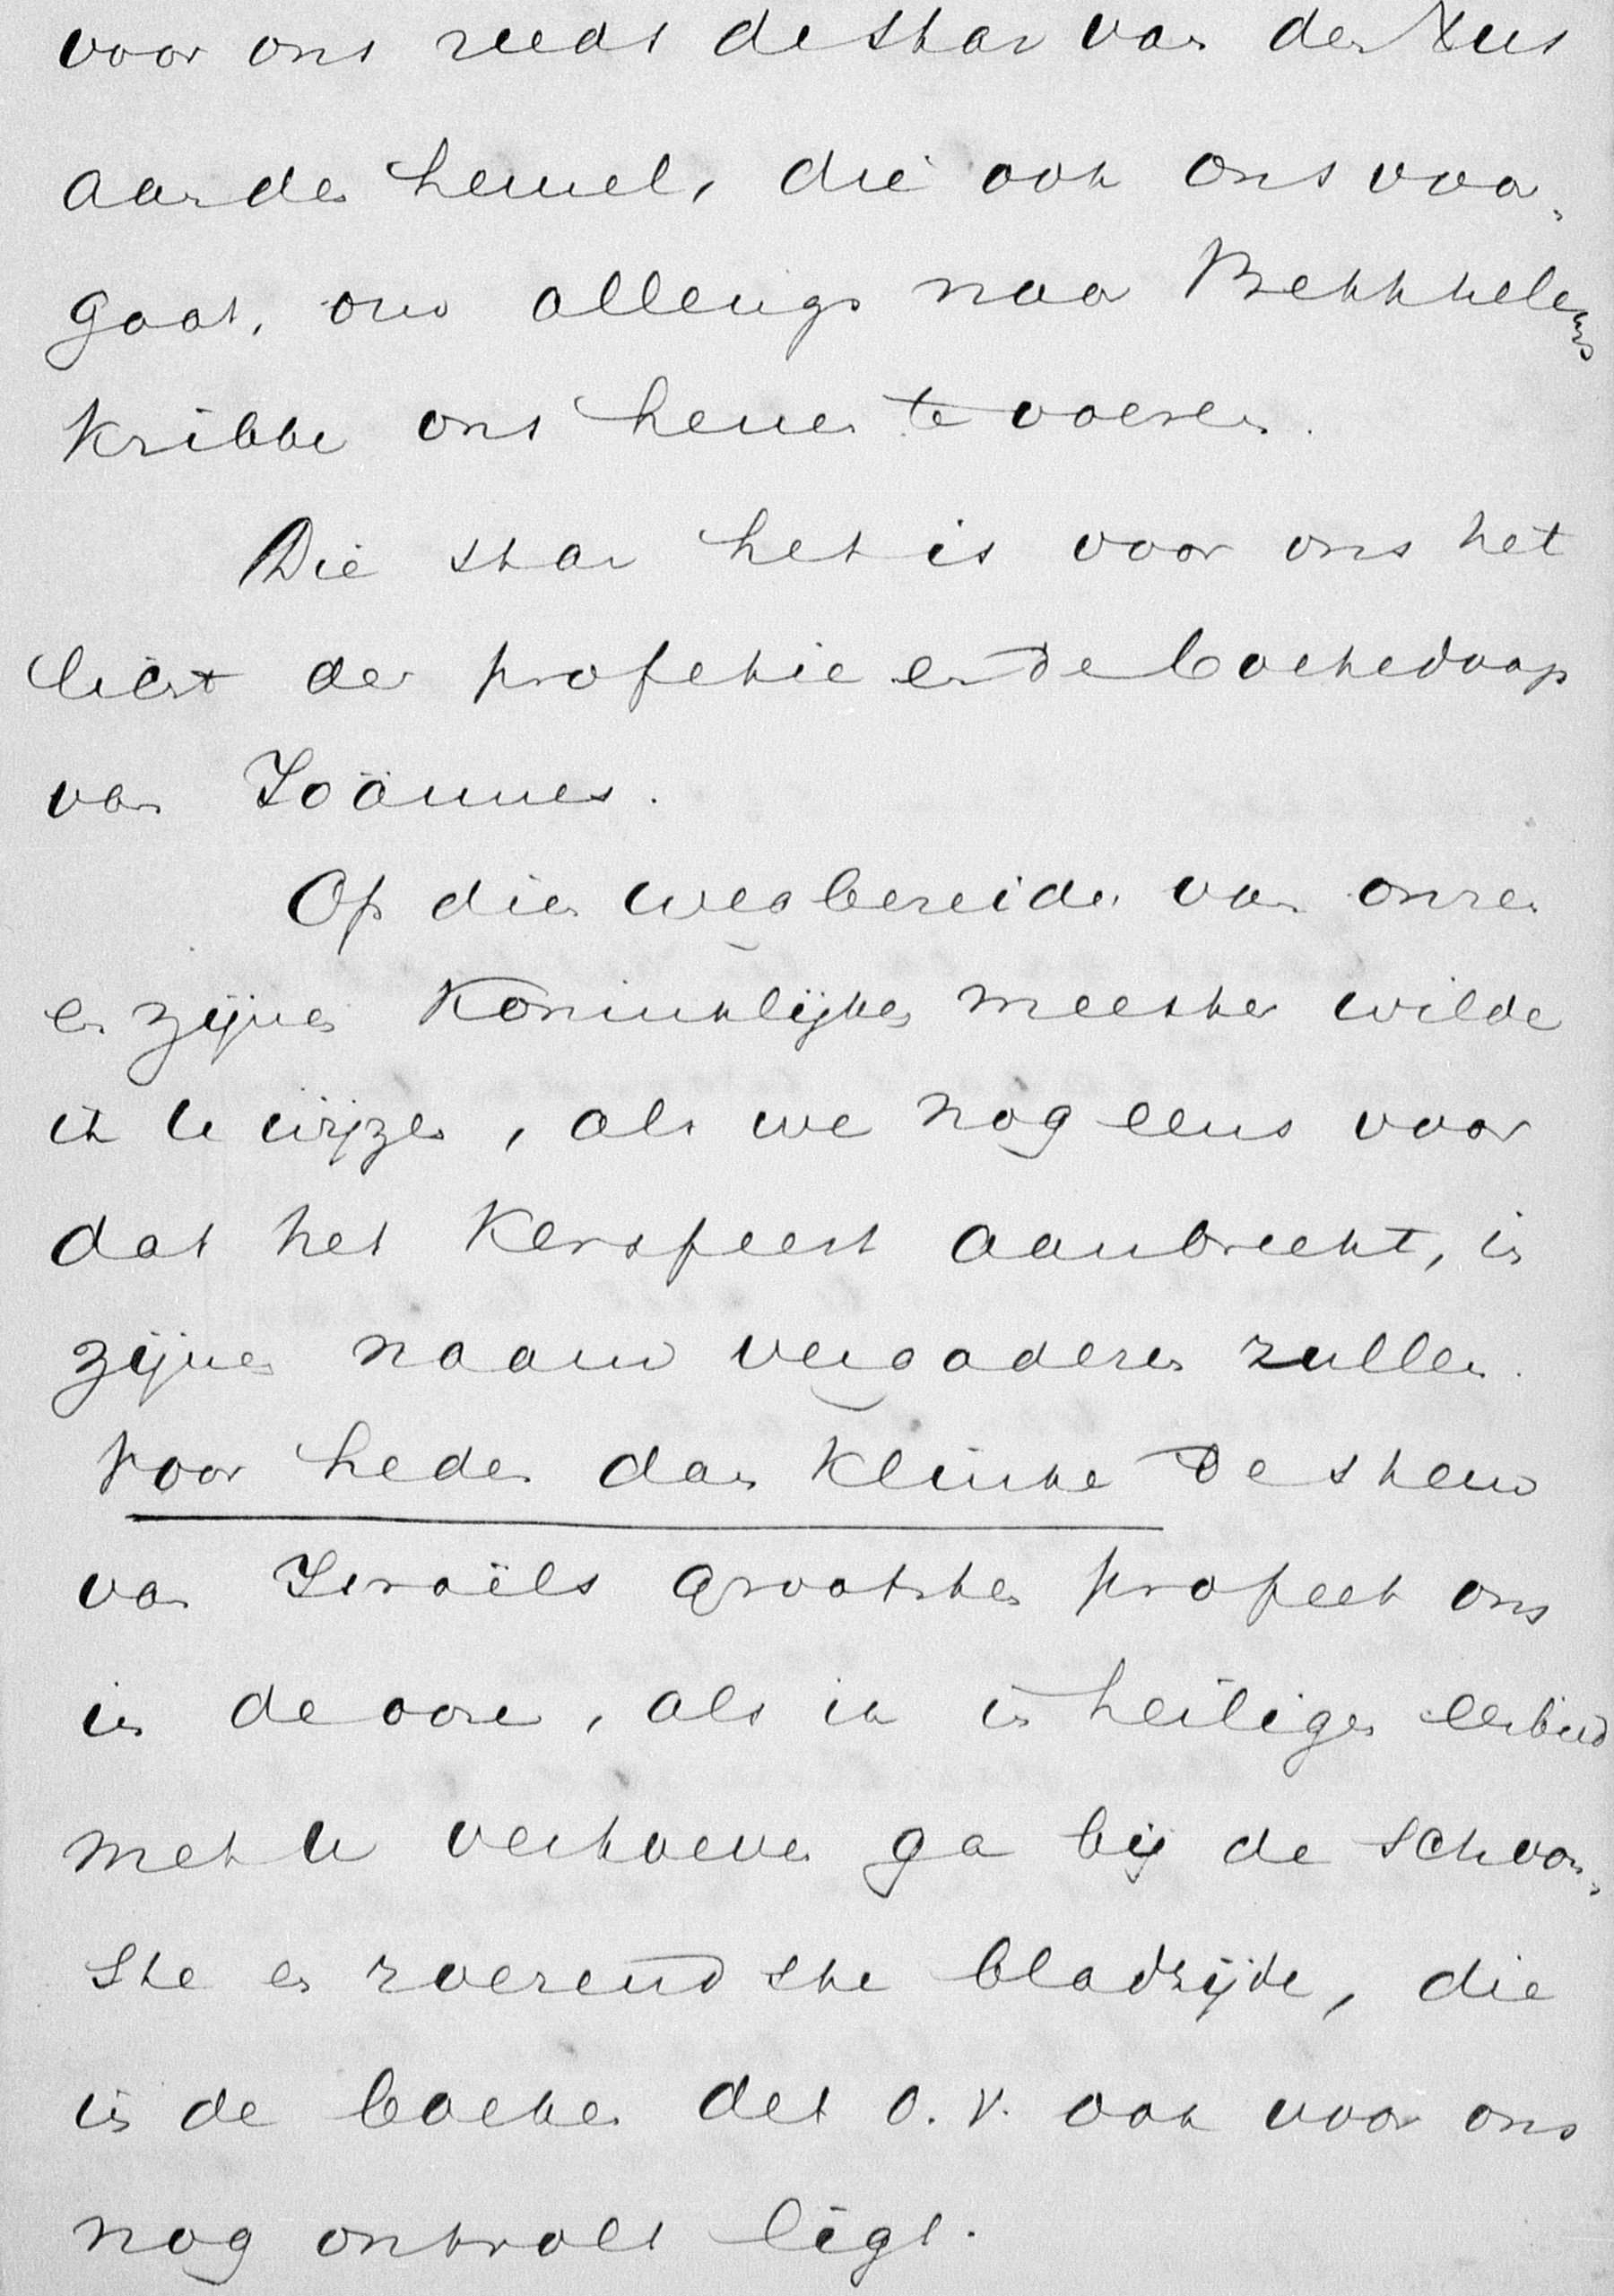 voor ons reeds de star van den Xus
aan den hemel, die ook ons voor-
gaat, om allengs naar Bethlehems
kribbe ons henen te voeren.
Die star het is voor ons het
licht der profetie en de boetedoop
van Joännes.
Op dien wegbereider van onzen
en zijnen Koninklijken meester wilde
ik U wijzen, als we nog eens voor
dat het Kersfeest aanbreekt, in
zijnen naam vergaderen zullen.
Voor heden dan klinke de stem
van Israëls grootsten profeet ons
in de ooren, als ik in heiligen eerbied
met U vertoeven ga bij de schoon-
ste en roerendste bladzijde, die
in de boeken des O.V. ook voor ons
nog ontrold ligt.